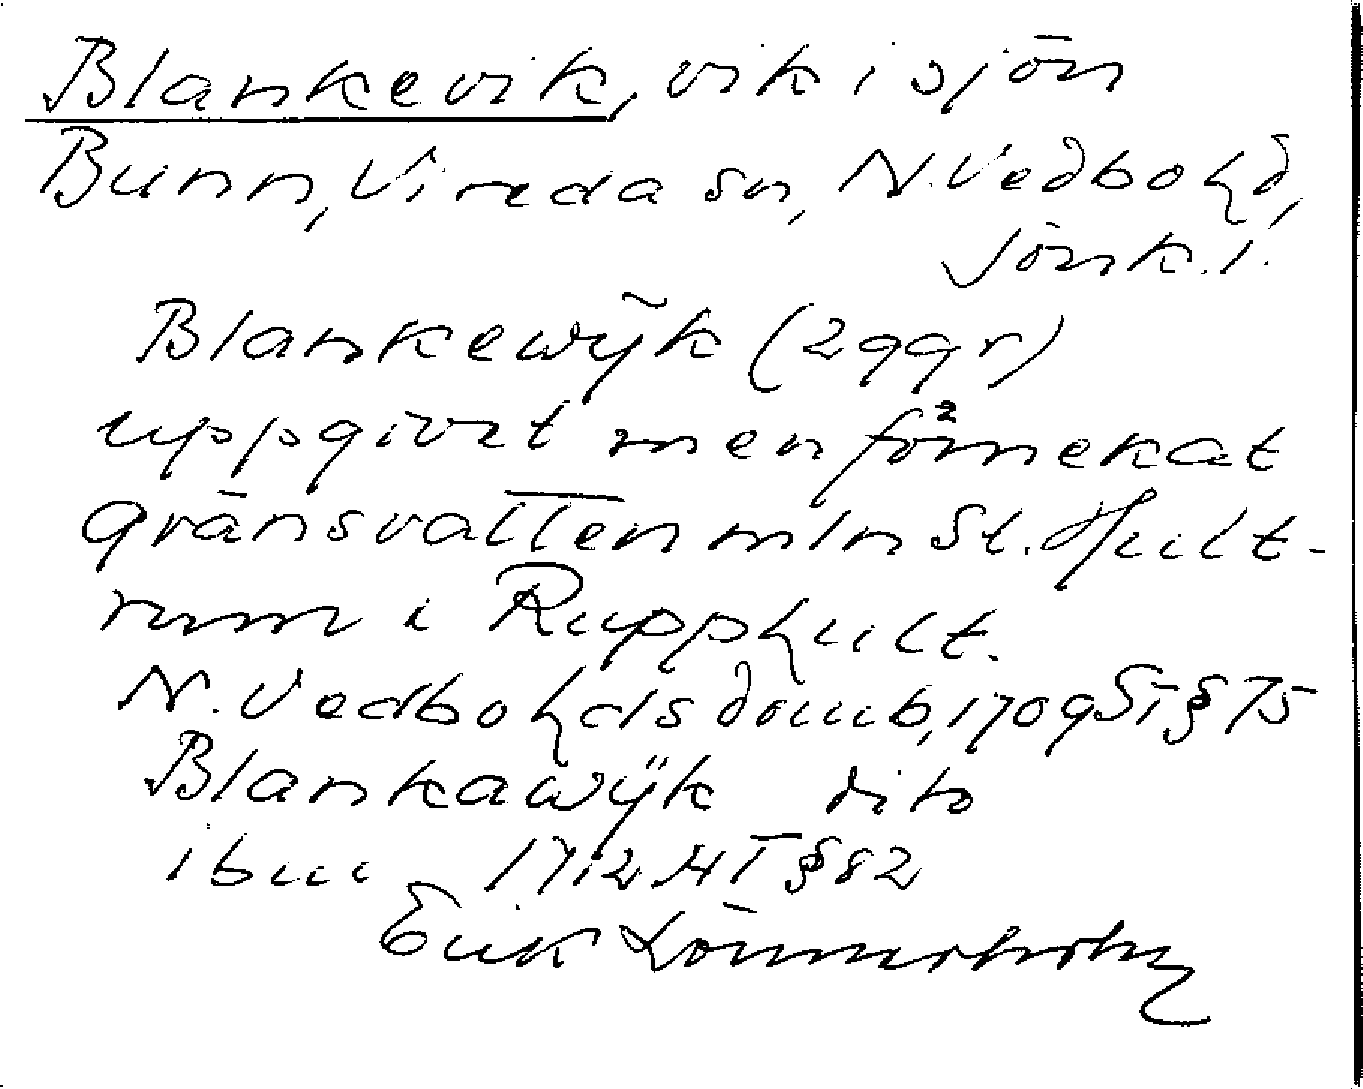 Blankevik, vik i sjön
Bunn, Vireda sn, N. Vedbo hd,
Jönk. l.
Blankewÿk (2 ggr)
uppgivet men förnekat
gränsvatten mln St. Hult-
rum i Rupphult.
N. Vedbo hds domb, 1709 ST § 75
Blankawÿk dito
ibm 1712 HT § 82
Erik Lönnerholm